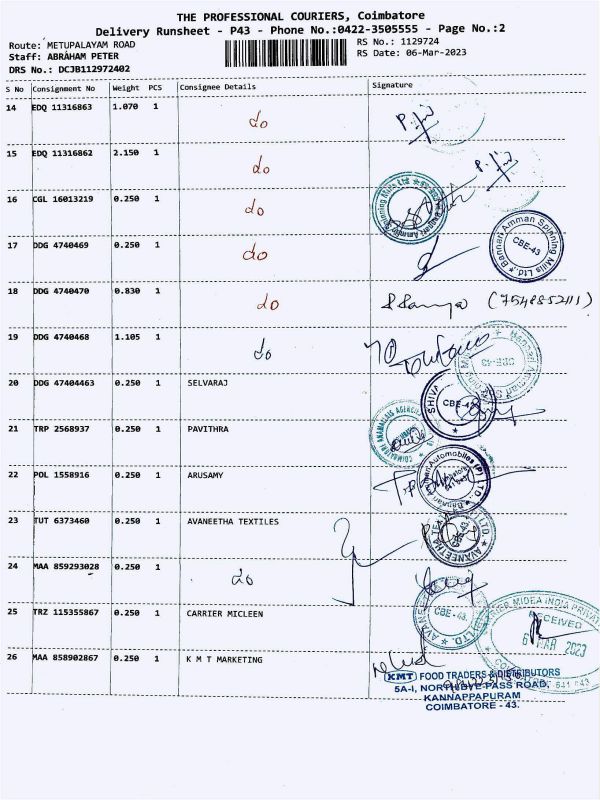 THE PROFESSIONAL COURIERS, Coimbatore
Delivery Runsheet - P43 - Phone No.:0422-3505555 - Page No.:2
Route: METUPALAYAM ROAD
RS No.: 1129724
Staff: ABRAHAM PETER
RS Date: 06-Mar-2023
DRS No.: DCJB112972402
S No Consignment No Weight PCS Consignee Details Signature
14 EDQ 11316863 1.070 1 do
15 EDQ 11316862 2.150 1 do
16 CGL 16013219 0.250 1 do
17 DDG 4740469 0.250 1 do
Bannari Amman Spinning Mills Ltd. CBE-43
18 DDG 4740470 0.830 1 do (7548852111)
19 DDG 4740468 1.105 1 do
CBE-43
20 DDG 47404463 0.250 1 SELVARAJ
CBE-43
21 TRP 2568937 0.250 1 PAVITHRA
22 POL 1558916 0.250 1 ARUSAMY
23 TUT 6373460 0.250 1 AVANEETHA TEXTILES
24 MAA 859293028 0.250 1 do
CBE-43.
25 TRZ 115355867 0.250 1 CARRIER MICLEEN
MIDEA INDIA PRIVATE
RECEIVED
6 MAR 2023
26 MAA 858902867 0.250 1 K M T MARKETING
KMT FOOD TRADERS & DISTRIBUTORS
5A-I, NORTH BYE-PASS ROAD,
KANNAPPAPURAM
COIMBATORE - 43.